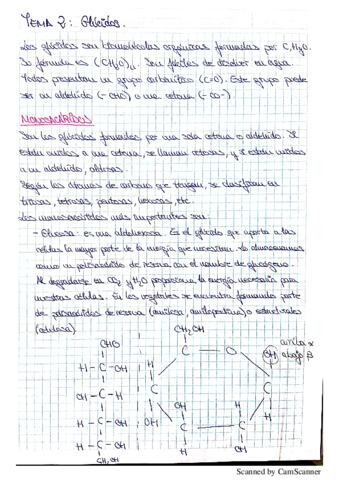 TEMA 2: Glúcidos.
Los glúcidos son biomoléculas orgánicas formadas por C,H,O.
Su fórmula es (CH₂O)n. Son fáciles de disolver en agua.
Todos presentan un grupo carbonílico (C=O). Este grupo puede
ser un aldehído (-CHO) o una cetona (-CO-)
MONOSACÁRIDOS
Son los glúcidos formados por una sola cetona o aldehído. Si
están unidos a una cetona, se llaman cetosas, y si están unidos
a un aldehído, aldosas.
Según los átomos de carbono que tengan, se clasifican en
triosas, tetrosas, pentosas, hexosas, etc.
Los monosacáridos más importantes son:
- Glucosa: es una aldohexosa. Es el glúcido que aporta a las
células la mayor parte de la energía que necesitan. Lo almacenamos
como un polisacárido de reserva con el nombre de glucógeno.
Al degradarse en CO₂ y H₂O proporciona la energía necesaria para
nuestras células. En los vegetales se encuentra formando parte
de polisacáridos de reserva (amilosa, amilopectina) o estructurales
(celulosa).
CHO
H-C-OH
OH-C-H
H-C-OH
H-C-OH
CH₂OH
CH₂OH
C
O
H
H
OH
arriba α
abajo β
C
C
OH
OH
H
H
C
C
H
OH
Scanned by CamScanner